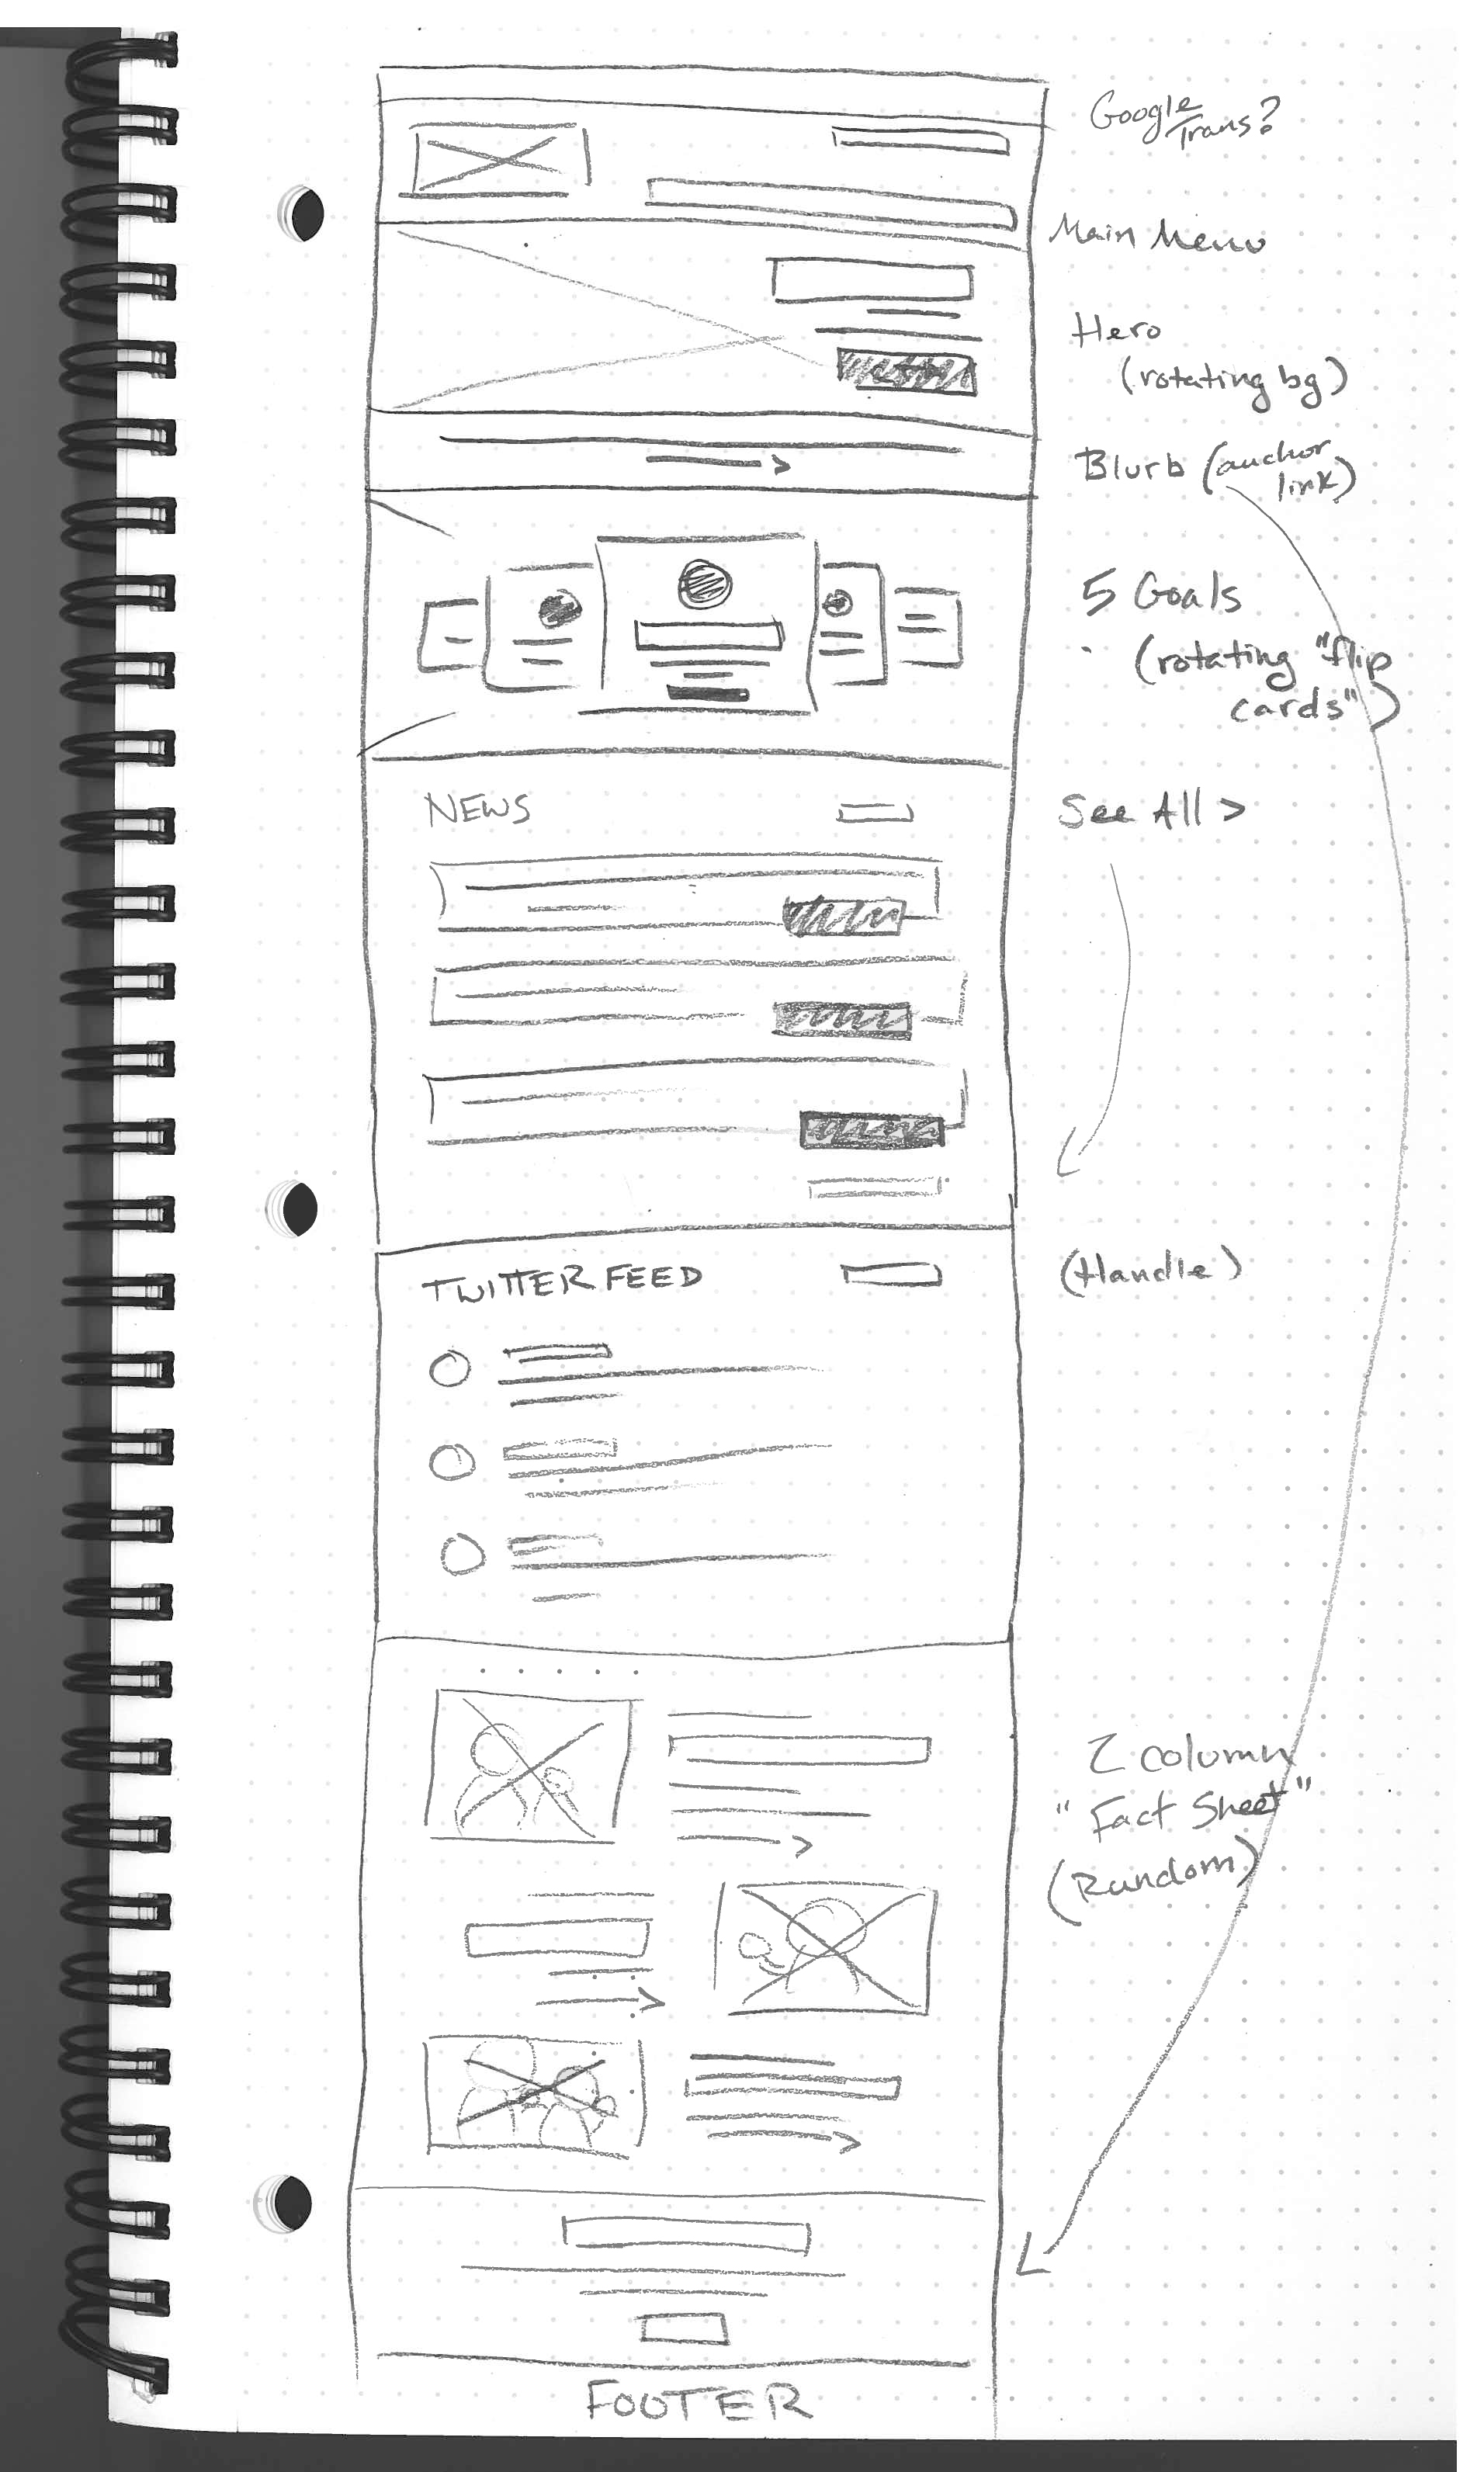 Google
Trans?
Main Menu
Hero
(rotating bg)
Blurb (anchor
link)
5 Goals
(rotating "flip
cards")
NEWS
See All >
TWITTER FEED
(Handle)
2 column
"Fact Sheet"
(Random)
FOOTER